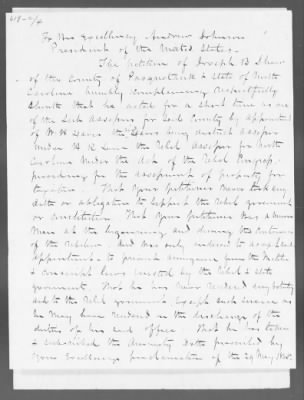 To His Excellency Andrew Johnson
President of the United States.
The petition of Joseph B Shaw
of the County of Pasquotank & State of North
Carolina humbly complaining respectfully
sheweth that he acted for a short time as one
of the Tax Assessor for said County by appointment
of W. H Davis the Davis being district assessor
under the Rebel assessor for North
Carolina under the Act of the Rebel Congress
providing for the assessment of property for
taxation. That Your Petitioner never took any
oath or obligation to support the Rebel government
or constitution. That Your petitioner was a Union
Man at the beginning and during the continuance
of the rebellion. And was only induced to accept said
appointment to prevent annoyance from the Militia
& conscript laws enacted by the Rebel & State
government. That he has never rendered any voluntary
aid to the Rebel government except such service as
he may have rendered in the discharge of the
duties of his said office. That he has taken
& subscribed the Amnesty Oath prescribed by
Your Excellencys proclamation of the 29 May 1865.